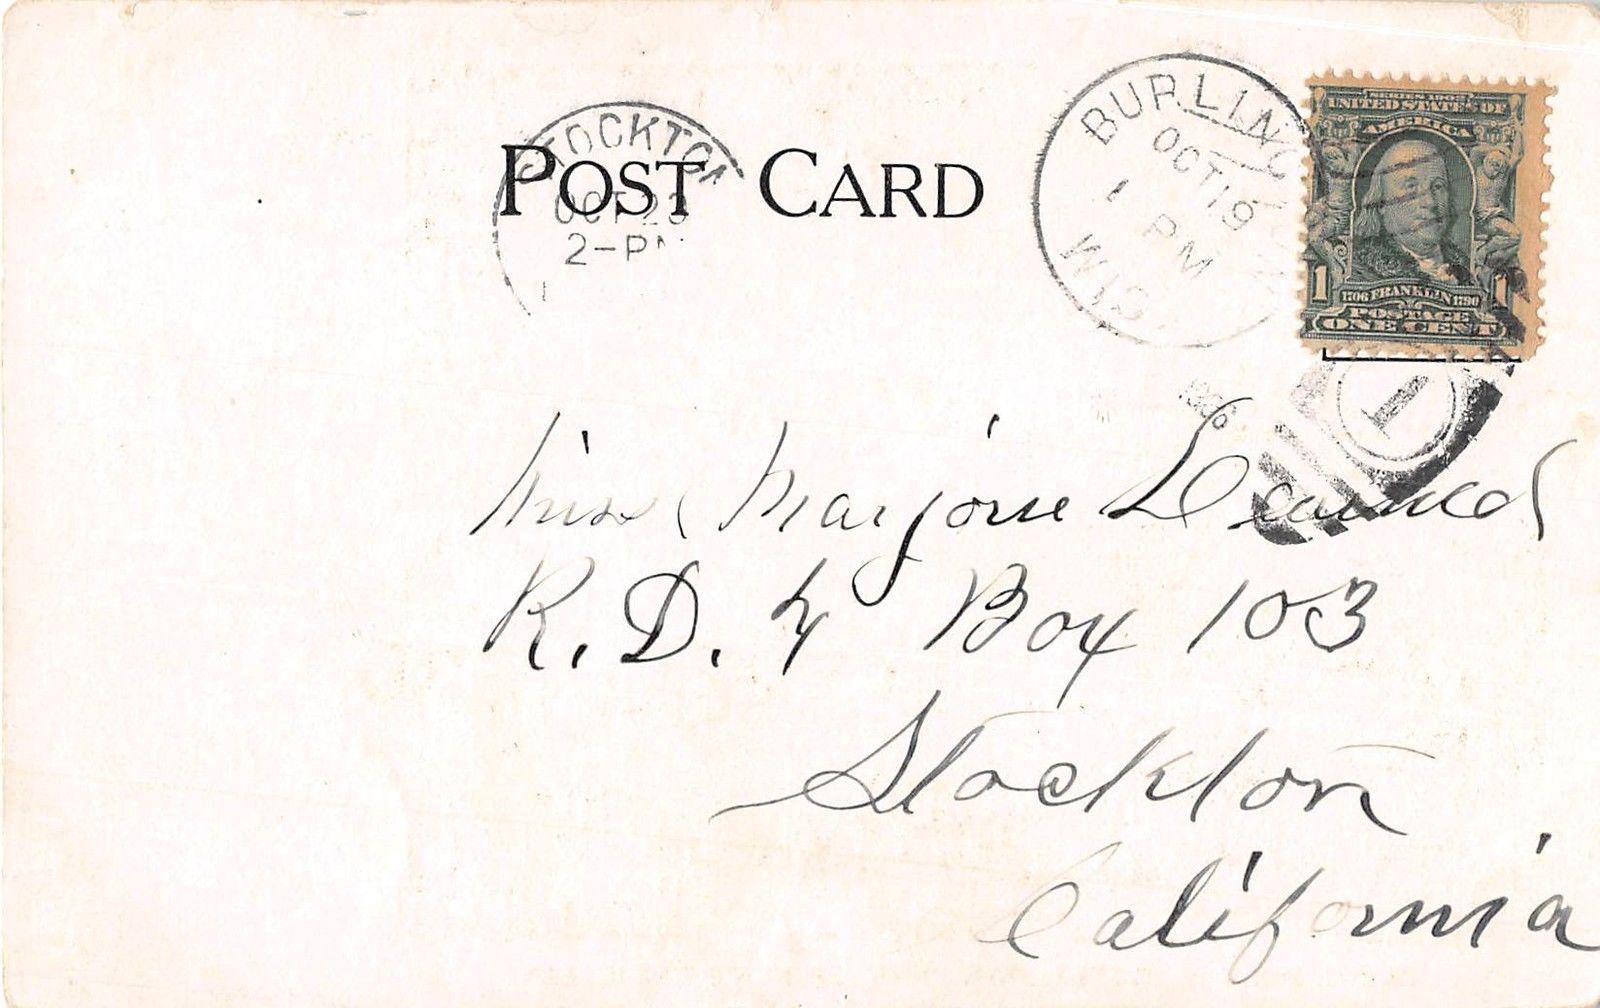 POST CARD
STOCKTON
OCT 23
2-PM
BURLINGTON
OCT 19
1 PM
WIS.
1906
SERIES 1902
UNITED STATES OF
AMERICA
1 1
1706 FRANKLIN 1790
POSTAGE
ONE CENT
1
Miss Marjorie
R.D. 4 Box 103
Stockton
California